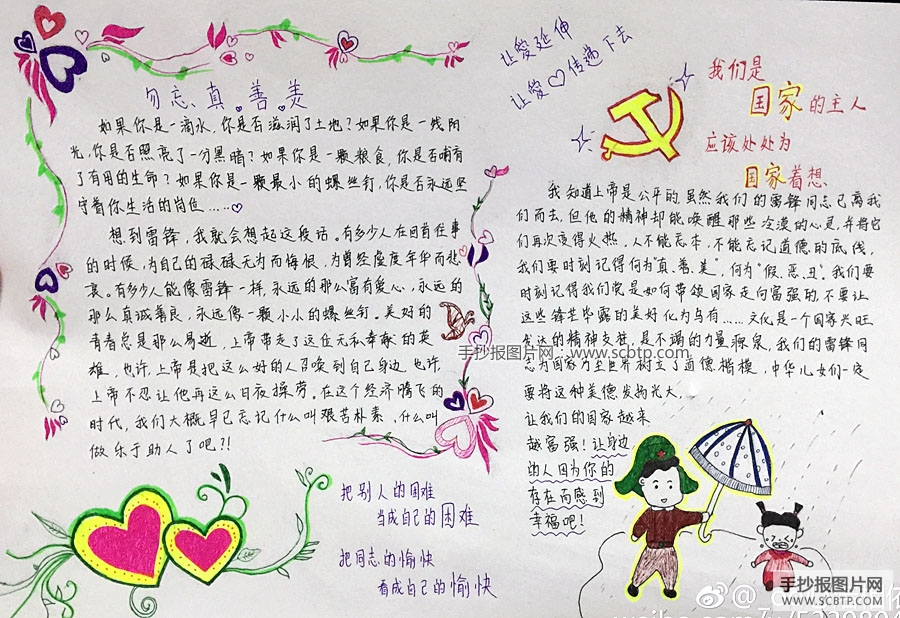 勿忘、真。善。美
如果你是一滴水,你是否滋润了土地?如果你是一线阳
光,你是否照亮了一分黑暗?如果你是一颗粮食,你是否哺育
了有用的生命?如果你是一颗最小的螺丝钉,你是否永远坚
守着你生活的岗位……
想到雷锋,我就会想起这段话。有多少人在回首往事
的时候,为自己的碌碌无为而悔恨,为曾经虚度年华而悲
哀。有多少人能像雷锋一样,永远的那么富有爱心,永远的
那么真诚善良,永远像一颗小小的螺丝钉。美好的
青春总是那么易逝,上帝带走了这位无私奉献的英
雄,也许,上帝是把这么好的人召唤到自己身边,也许,
上帝不忍让他再这么日夜操劳。在这个经济腾飞的
时代,我们大概早已忘记什么叫艰苦朴素,什么叫
做乐于助人了吧?!
把别人的困难
当成自己的困难
把同志的愉快
看成自己的愉快
让爱延伸
让爱传递下去
我们是
国家的主人
应该处处为
国家着想
我知道上帝是公平的,虽然我们的雷锋同志已离我
们而去,但他的精神却能唤醒那些冷漠的心灵,并将它
们再次变得火热,人不能忘本,不能忘记道德的底线,
我们要时刻记得何为"真、善、美",何为"假、恶、丑",我们要
时刻记得我们党是如何带领国家走向富强的,不要让
这些锋芒毕露的美好化为乌有……文化是一个国家兴旺
发达的精神支柱,是不竭的力量源泉,我们的雷锋同
志为国家乃至世界树立了道德楷模,中华儿女们一定
要将这种美德发扬光大,
让我们的国家越来
越富强!让身边
的人因为你的
存在而感到
幸福吧!
手抄报图片网 www.scbtp.com
手抄报图片网
WWW.SCBTP.COM